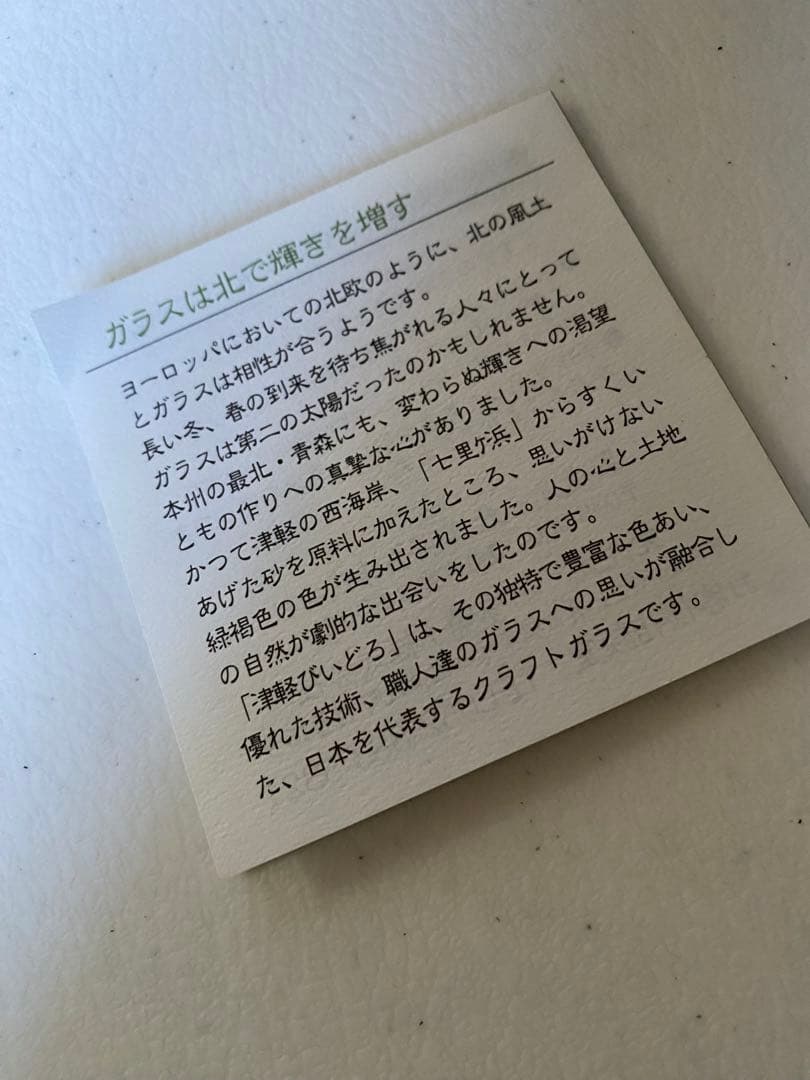 ガラスは北で輝きを増す
ヨーロッパにおいての北欧のように、北の風土
とガラスは相性が合うようです。
長い冬、春の到来を待ち焦がれる人々にとって
ガラスは第二の太陽だったのかもしれません。
本州の最北・青森にも、変わらぬ輝きへの渇望
ともの作りへの真摯な心がありました。
かつて津軽の西海岸、「七里ケ浜」からすくい
あげた砂を原料に加えたところ、思いがけない
緑褐色の色が生み出されました。人の心と土地
の自然が劇的な出会いをしたのです。
「津軽びいどろ」は、その独特で豊富な色あい、
優れた技術、職人達のガラスへの思いが融合し
た、日本を代表するクラフトガラスです。